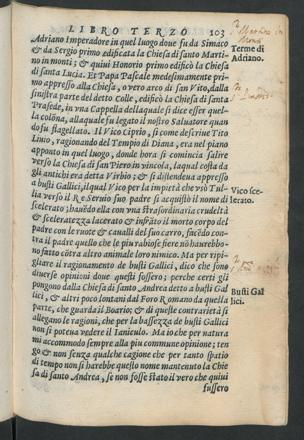 LIBRO TERZO 103
Adriano Imperadore in quel luogo doue fu da Simaco
& da Sergio primo edificata la Chiesa di santo Marti
no in monti; & quiui Honorio primo edificò la Chiesa
di santa Lucia. Et Papa Pascale medesimamente pri
mo appresso alla Chiesa, o vero arco di san Vito, dalla
sinistra parte del detto Colle, edificò la Chiesa di santa
Prasede, in vna Cappella dellaquale si dice esser quel
la colōna, allaquale fu legato il nostro Saluatore quan
do fu flagellato. Il Vico Ciprio, si come descriue Tito
Liuio, ragionando del Tempio di Diana, era nel piano
apponto in quel luogo, donde hora si comincia salire
verso la Chiesa di san Piero in vincola, laqual costa da
gli antichi era detta Virbio; & si distendeua appresso
a busti Gallici, il qual Vico per la impietà che vsò Tul
lia verso il Re Seruio suo padre si acquistò il nome di
scelerato: hauēdo ella con vna straordinaria crudeltà
& sceleratezza lacerato & infrāto il morto corpo del
padre con le ruote & caualli del suo carro, facēdo con
tra il padre quello che le piu rabiose fiere nō haurebbo-
no fatto cōtra altro animale loro nimico. Ma per ripi-
gliare il ragionamento de busti Gallici, dico che sono
diuerse opinioni doue questi fossero; perche certi gli
pongono dalla Chiesa di santo Andrea detto a busti Gal
lici, & altri poco lontani dal Foro Romano da quella
parte, che guarda il Boario; & di queste contrarietà si
allegano le ragioni, che per la bassezza de busti Gallici
non si poteua vedere il Ianiculo. Ma io che per natura
mi accommodo sempre alla piu commune opinione; ten
go & non senza qualche cagione che per tanto spatio
di tempo non si harebbe questo nome mantenuto la Chie
sa di santo Andrea, se non fosse stato il vero che quiui
fussero
Terme di
Adriano.
Vico sce
lerato.
Busti Gal
lici.